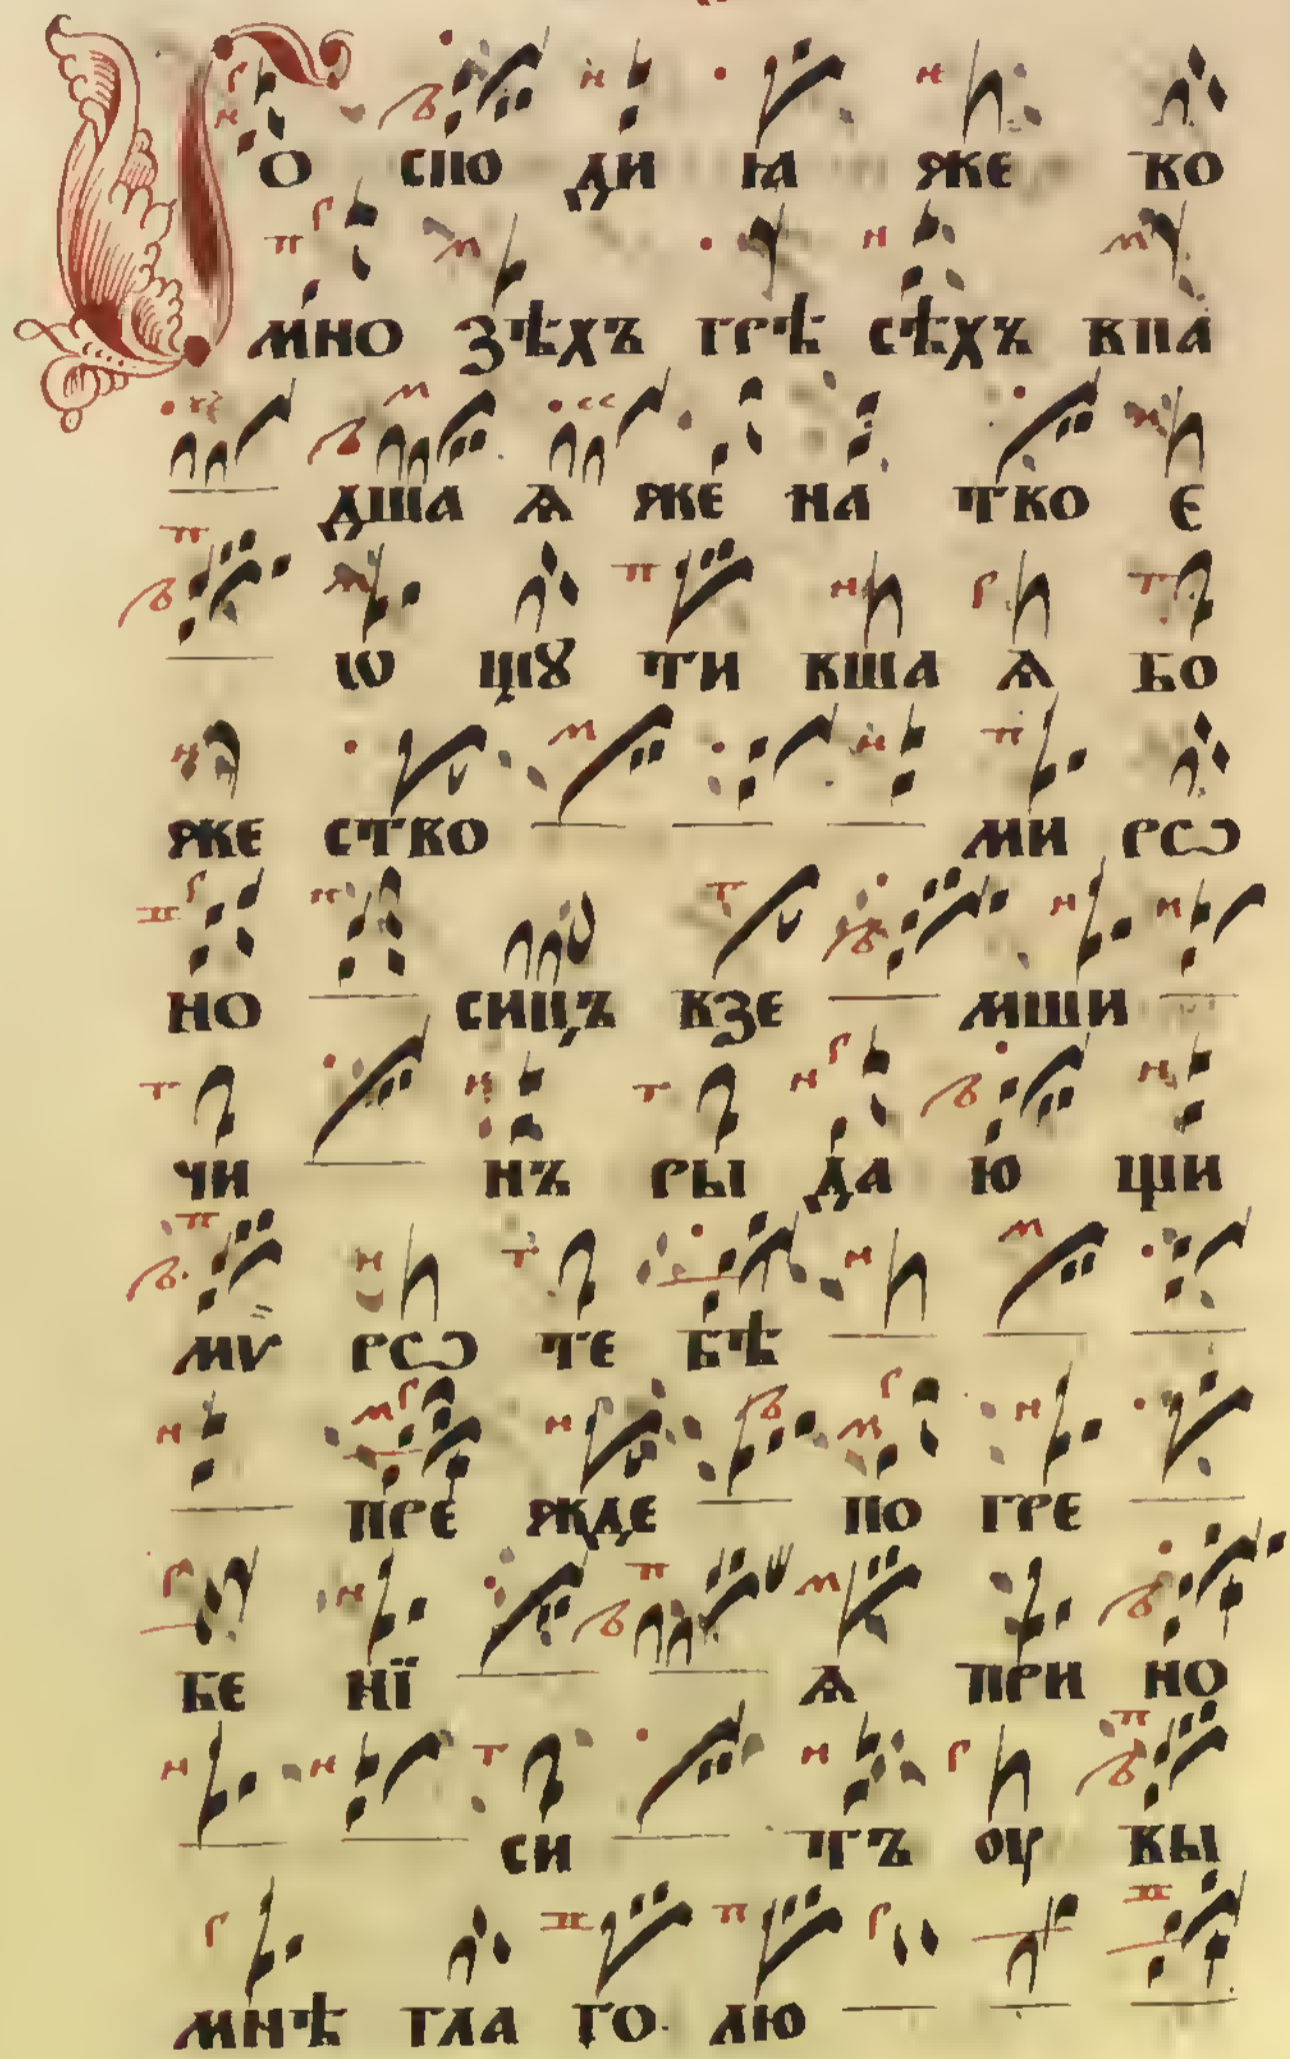 Го спо ди ꙗ же во
мно зѣхъ грѣ сѣхъ впа
дша ѧ же на тво е
ѡ щꙋ ти вша ѧ бо
же ство ми рѡ
но сицъ взе мши
чи нъ ры да ю щи
мѵ рѡ те бѣ
пре жде по гре
бе нї ѧ при но
си тъ оу вы
мнѣ гла го лю